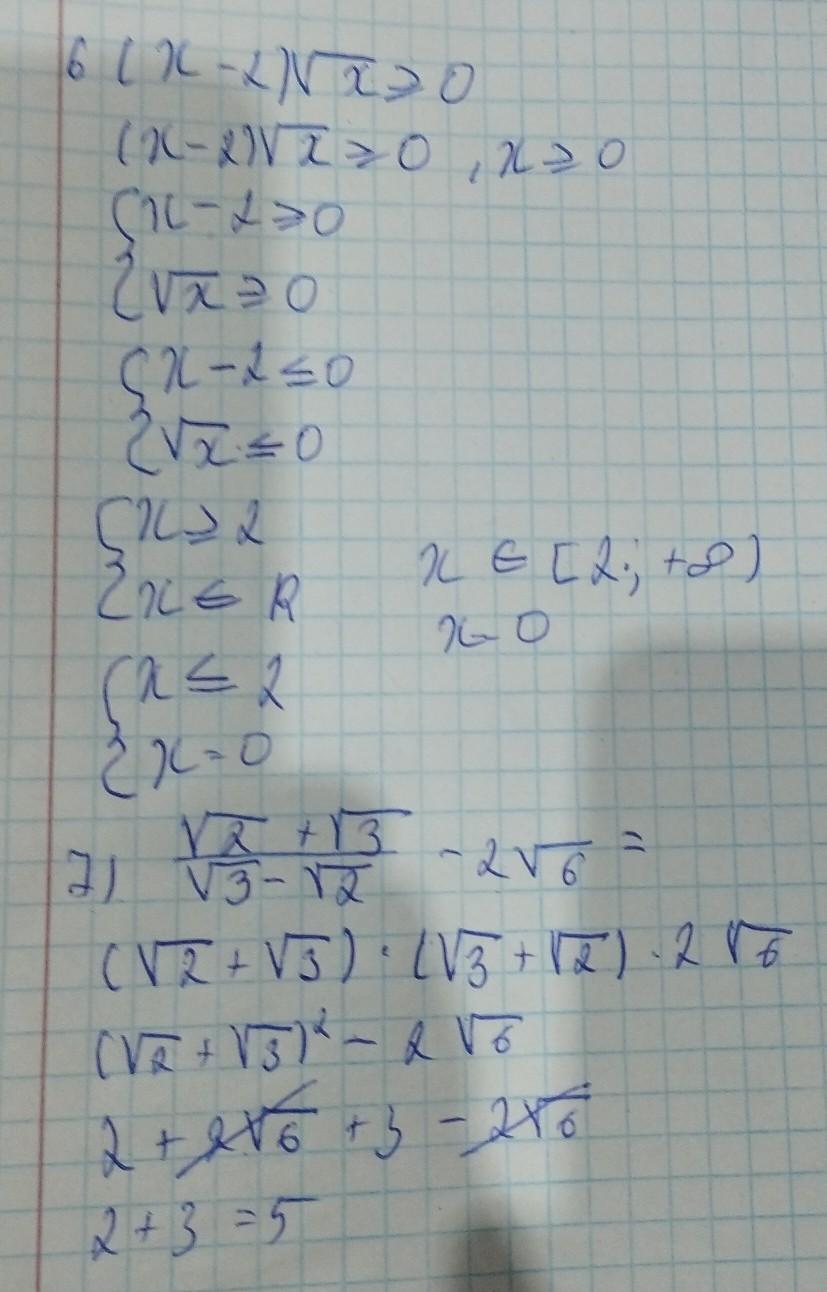 6 (x - 2)√x ⩾ 0
(x - 2)√x ⩾ 0 , x ⩾ 0
{ x - 2 ⩾ 0
√x ⩾ 0
{ x - 2 ≤ 0
√x ≤ 0
{ x ⩾ 2
x ∈ R
x ∈ [2; +∞)
x = 0
{ x ≤ 2
x = 0
7) (√2 + √3)/(√3 - √2) - 2√6 =
(√2 + √3) · (√3 + √2) · 2√6
(√2 + √3)² - 2√6
2 + 2√6 + 3 - 2√6
2 + 3 = 5